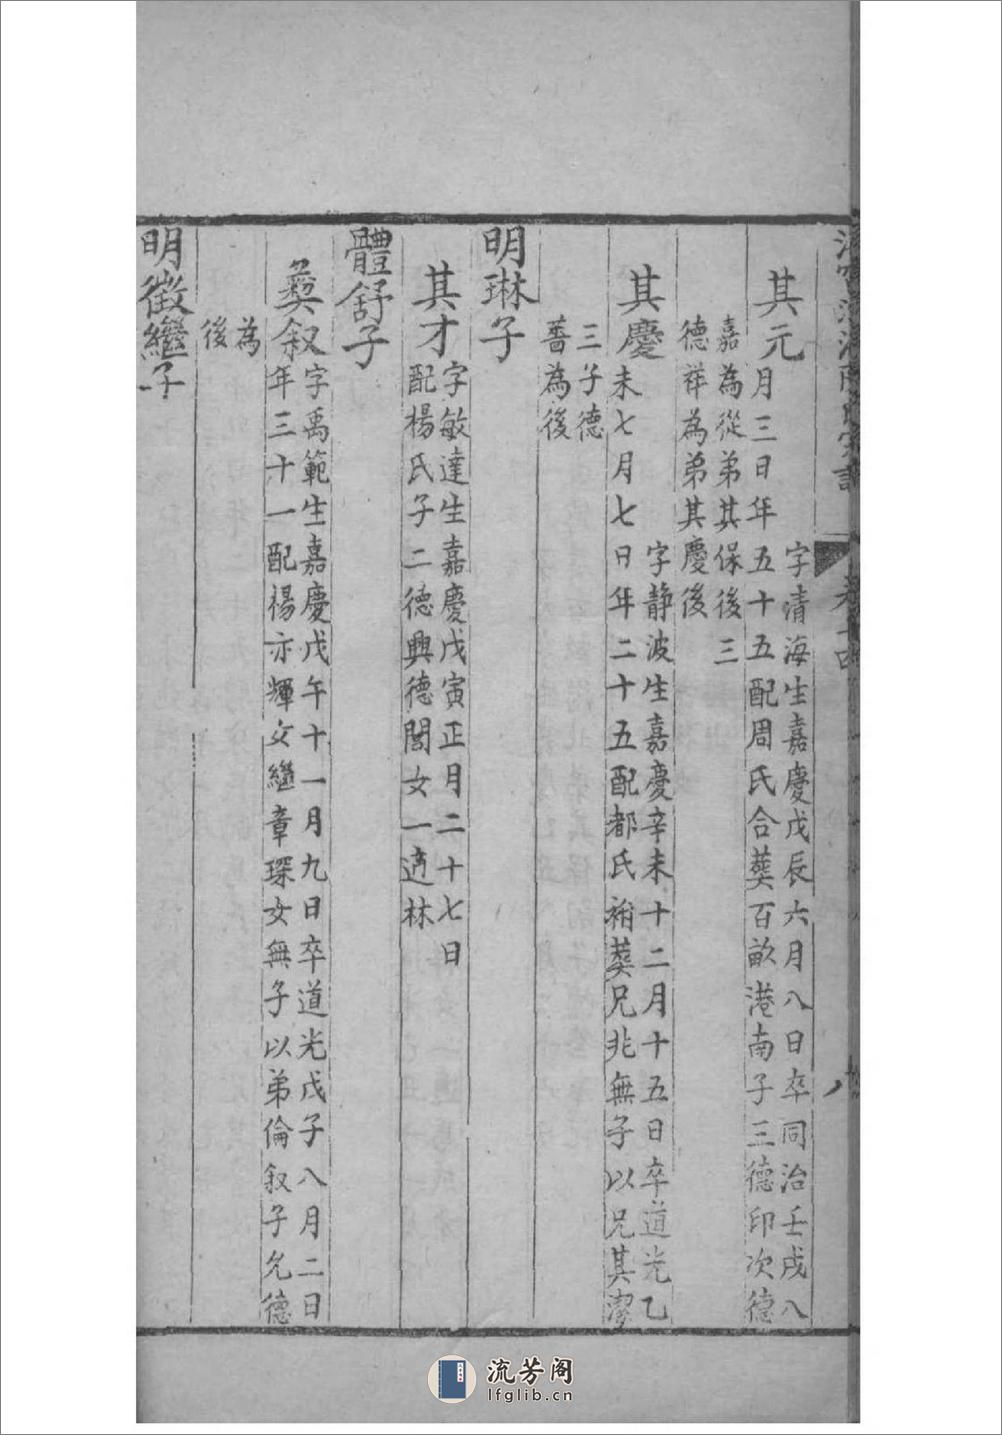 其元
字清海生嘉慶戊辰六月八日卒同治壬戌八
月三日年五十五配周氏合葬百畝港南子三德印次德
嘉為從弟其保後三
德祥為弟其慶後
其慶
字静波生嘉慶辛未十二月十五日卒道光乙
未七月七日年二十五配都氏祔葬兄兆無子以兄其潔
三子德
薔為後
明琳子
其才
字敏達生嘉慶戊寅正月二十七日
配楊氏子二德興德誾女一適林
體舒子
彜叙
字禹範生嘉慶戊午十一月九日卒道光戊子八月二日
年三十一配禓亦輝女繼章琛女無子以弟倫叙子允德
為
後
明徵繼子
流芳阁
lfglib.cn